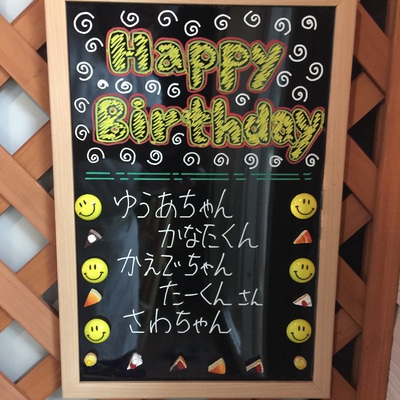 Happy
Birthday
ゆうあちゃん
かなたくん
かえでちゃん
たーくんさん
さわちゃん